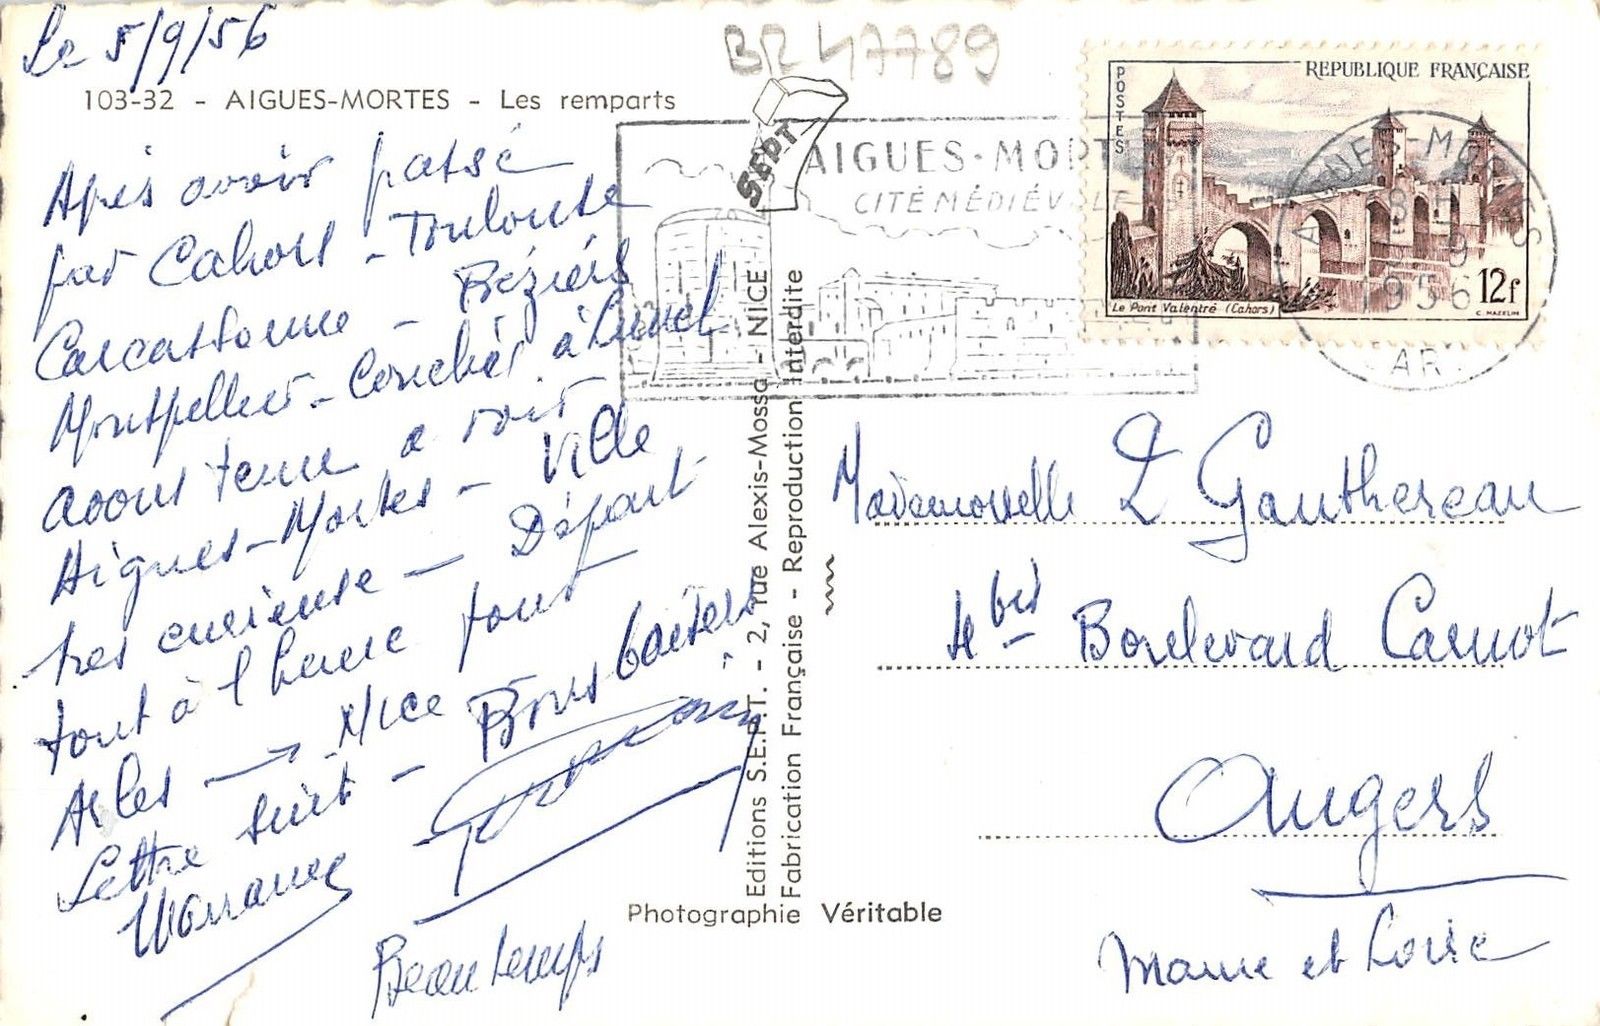 Le 5/9/56
BR 47789
103-32 - AIGUES-MORTES - Les remparts
Après avoir passé
par Cahors - Toulouse
Carcassonne - Béziers
Montpellier - Coucher à Lunel
avons tenu a voir
Aigues-Mortes - Ville
très curieuse - Départ
tout à l'heure pour
Arles → Nice
Lettre suit - Bons baisers
Beau temps
SEPT
Editions S.E.P.T. - 2, rue Alexis-Mossa - NICE
Fabrication Française - Reproduction interdite
Photographie Véritable
AIGUES-MORTES
CITÉ MÉDIÉVALE
POSTES
REPUBLIQUE FRANÇAISE
Le Pont Valentré (Cahors)
12f
C. MAZELIN
AIGUES-MORTES
18 H
5-9
1956
GARD
Mademoiselle L Gauthereau
4 bis Boulevard Carnot
Angers
Maine et Loire